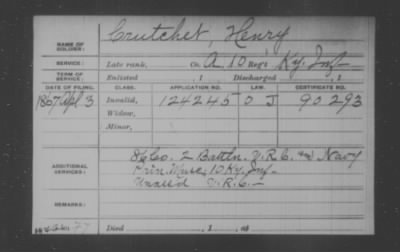 Crutchet, Henry
NAME OF SOLDIER:
SERVICE: Late rank, Co. A, 10 Reg't Ky. Inf.
TERM OF SERVICE: Enlisted , 1 Discharged , 1
DATE OF FILING. CLASS. APPLICATION NO. LAW. CERTIFICATE NO.
1867 Apl 3 Invalid, 124245 O J 90293
Widow,
Minor,
ADDITIONAL SERVICES: 86 Co. 2 Battln. V.R.C. and Navy
Prin. Musc. 10 Ky. Inf.
Unass'd V.R.C.
REMARKS:
Died , 1 , at